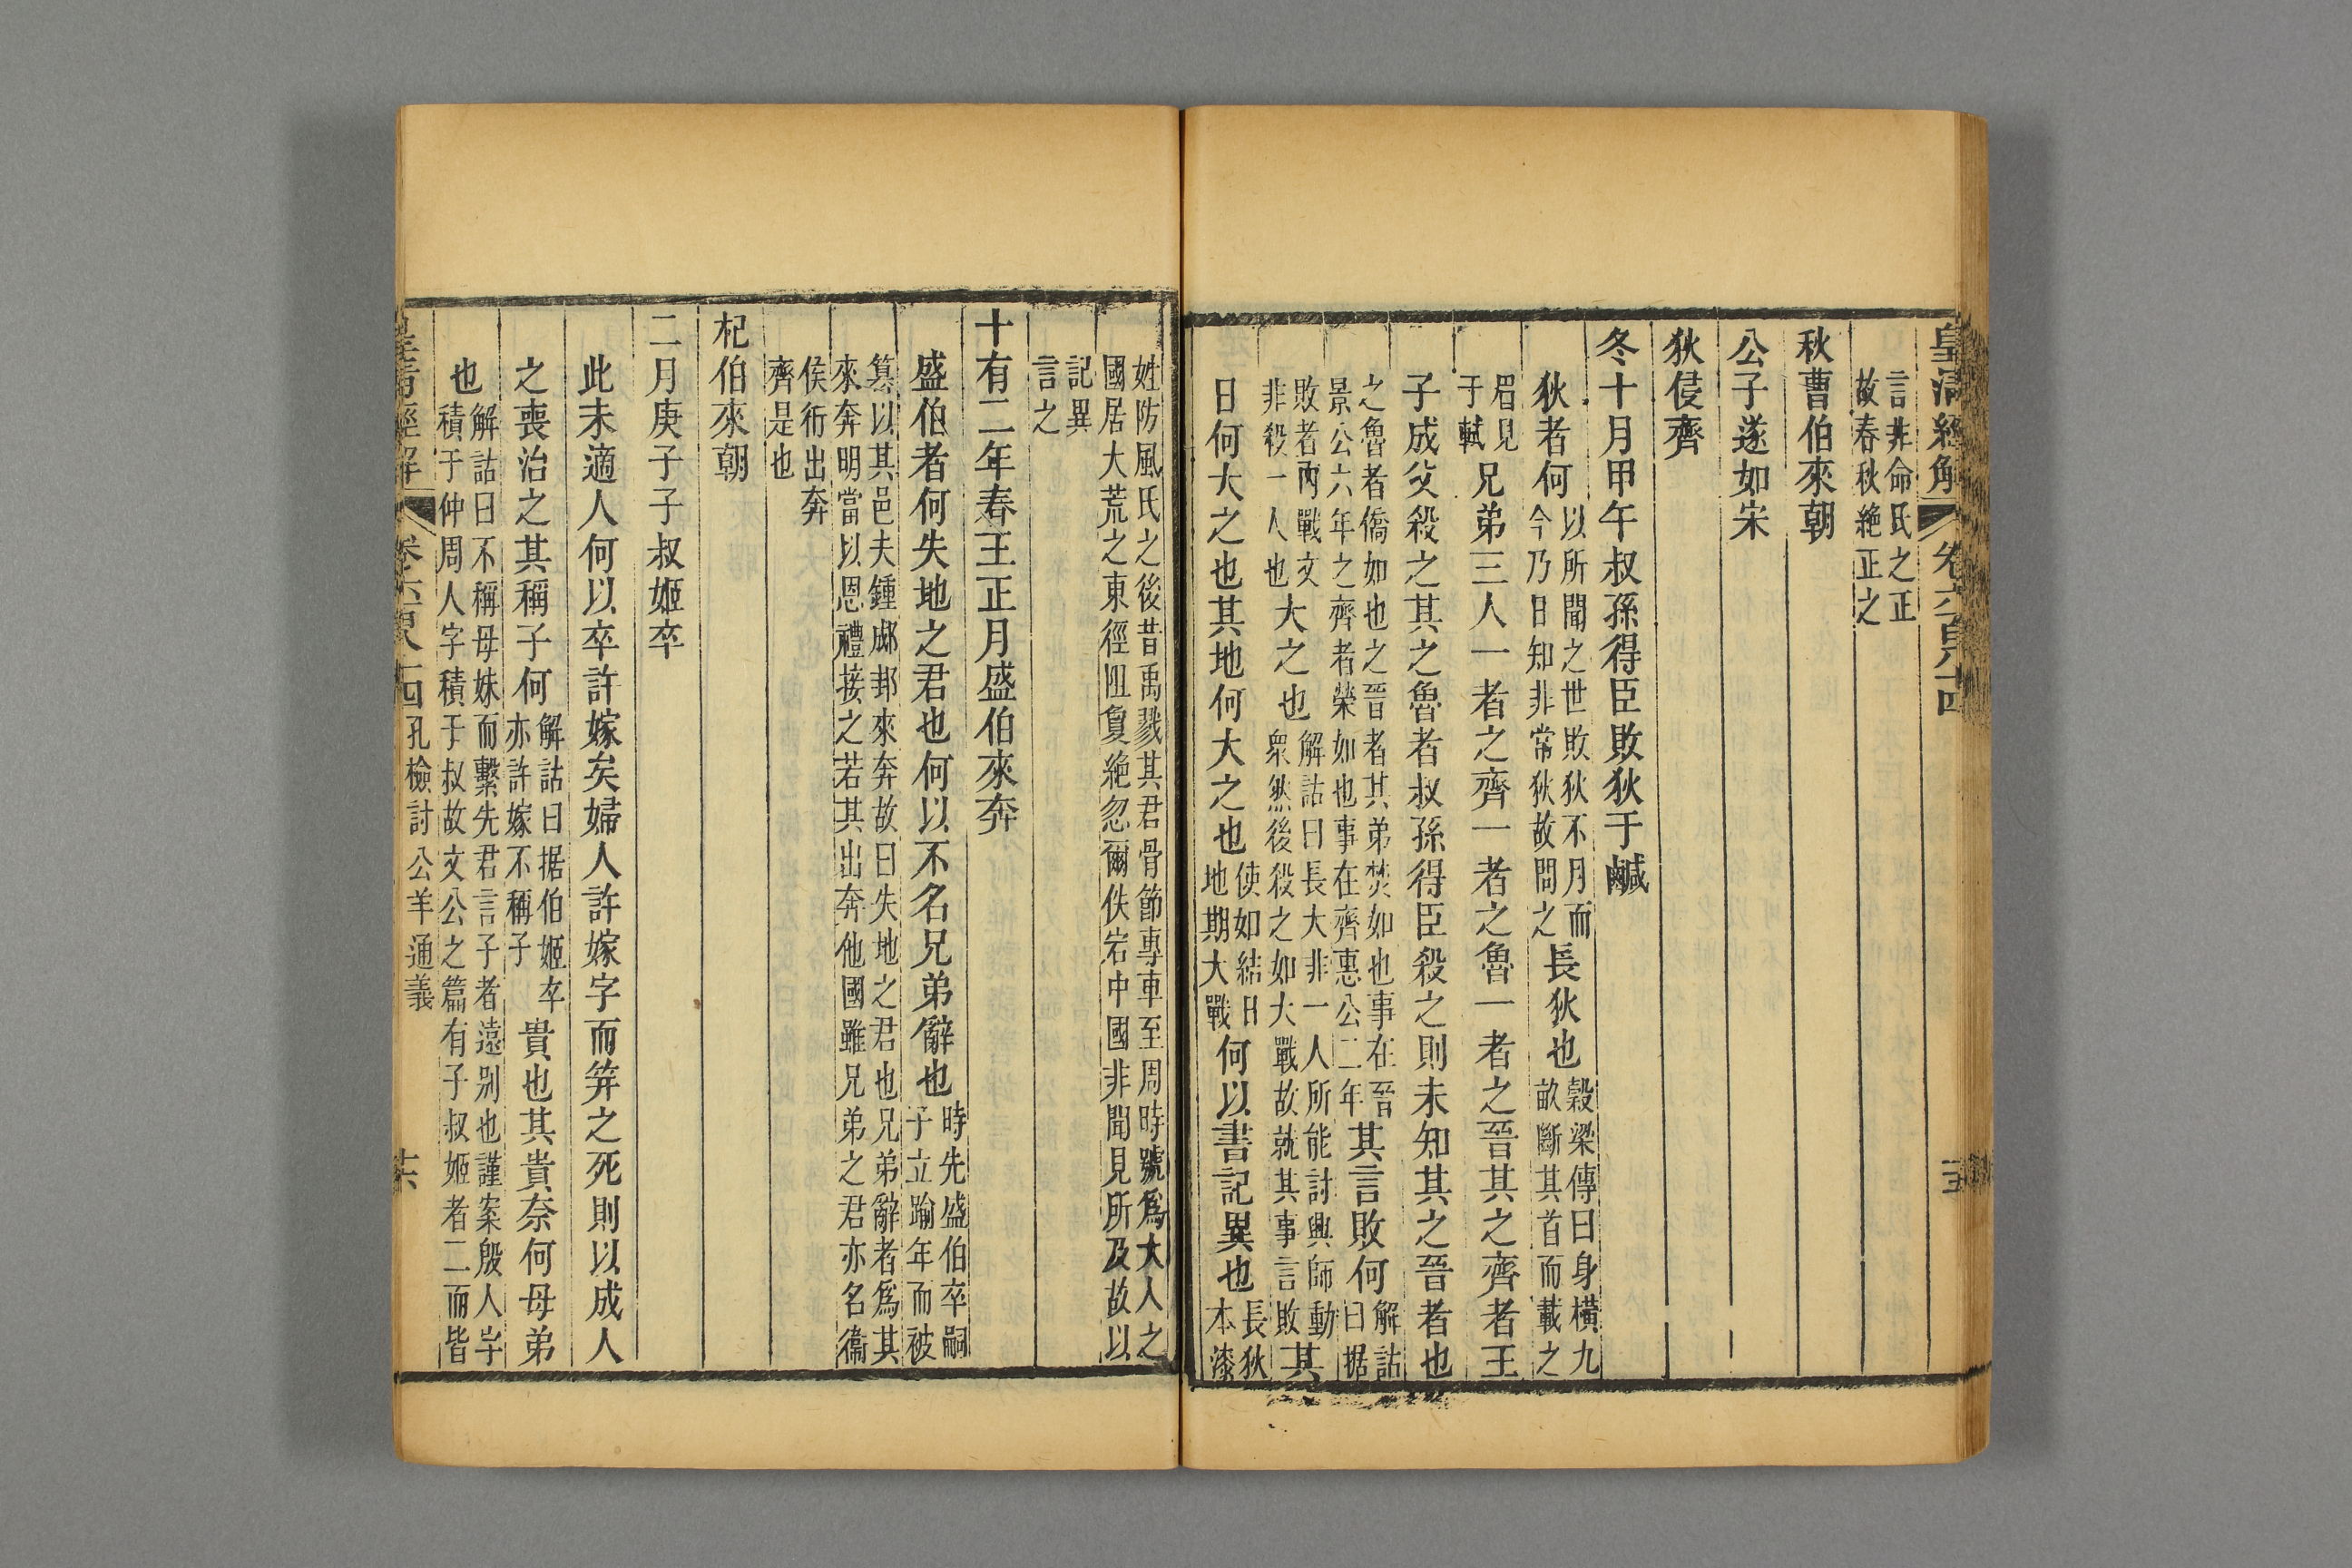 皇清經解 卷六百八十四 十五
言非命氏之正
故春秋絶正之
秋曹伯來朝
公子遂如宋
狄侵齊
冬十月甲午叔孫得臣敗狄于鹹
狄者何以所聞之世敗狄不月而今乃日知非常狄故問之長狄也穀梁傳曰身橫九畝斷其首而載之
眉見于軾兄弟三人一者之齊一者之魯一者之晉其之齊者王
子成父殺之其之魯者叔孫得臣殺之則未知其之晉者也
之魯者僑如也之晉者其弟焚如也事在晉景公六年之齊者榮如也事在齊惠公二年其言敗何解詁曰据
敗者兩戰文非殺一人也大之也解詁曰長大非一人所能討興師動衆然後殺之如大戰故就其事言敗其
日何大之也其地何大之也使如結日地期大戰何以書記異也長狄本漆
姓防風氏之後昔禹戮其君骨節專車至周時號爲大人之
國居大荒之東徑阻夐絶忽爾佚宕中國非聞見所及故以
記異
言之
十有二年春王正月盛伯來奔
盛伯者何失地之君也何以不名兄弟辭也時先盛伯卒嗣子立踰年而被
篡以其邑夫鍾郕邽來奔故曰失地之君也兄弟辭者爲其
來奔明當以恩禮接之若其出奔他國雖兄弟之君亦名衞
侯衎出奔
齊是也
杞伯來朝
二月庚子子叔姬卒
此未適人何以卒許嫁矣婦人許嫁字而筓之死則以成人
之喪治之其稱子何解詁曰据伯姬卒亦許嫁不稱子貴也其貴奈何母弟
也解詁曰不稱母妹而繫先君言子者遠别也謹案殷人字積于仲周人字積于叔故文公之篇有子叔姬者二而皆
皇清經解 卷六百八十四 孔檢討公羊通義 十六